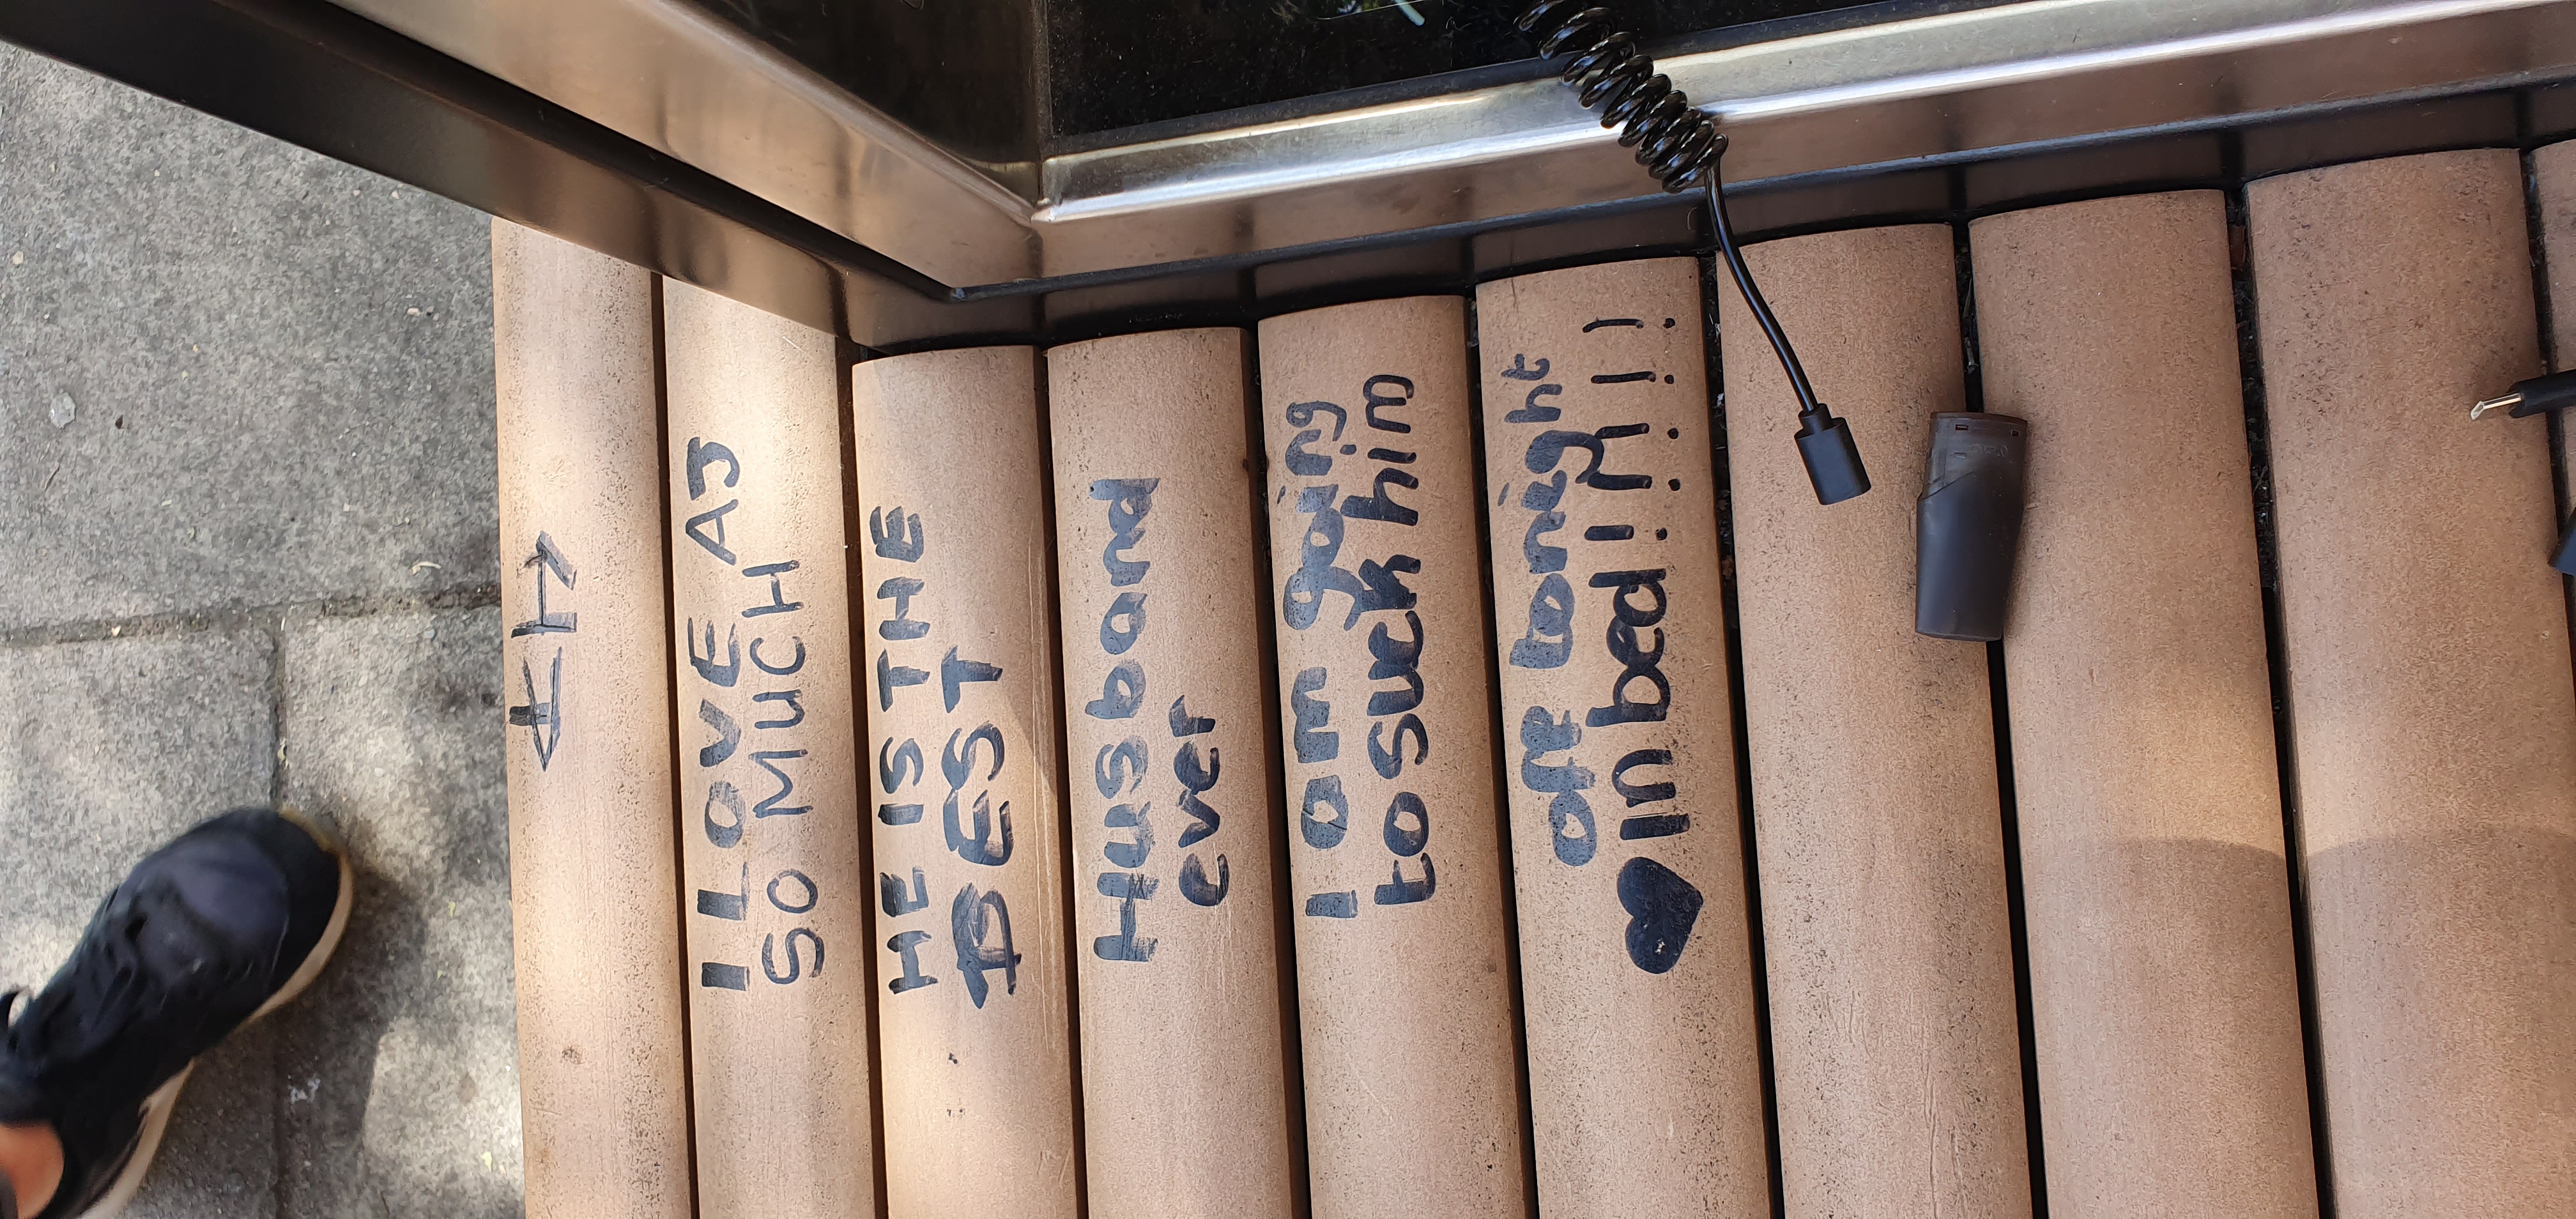 I LOVE AJ
SO MUCH
HE IS THE
BEST
Husband
ever
I am going
to suck him
off tonight
in bed!!!!!